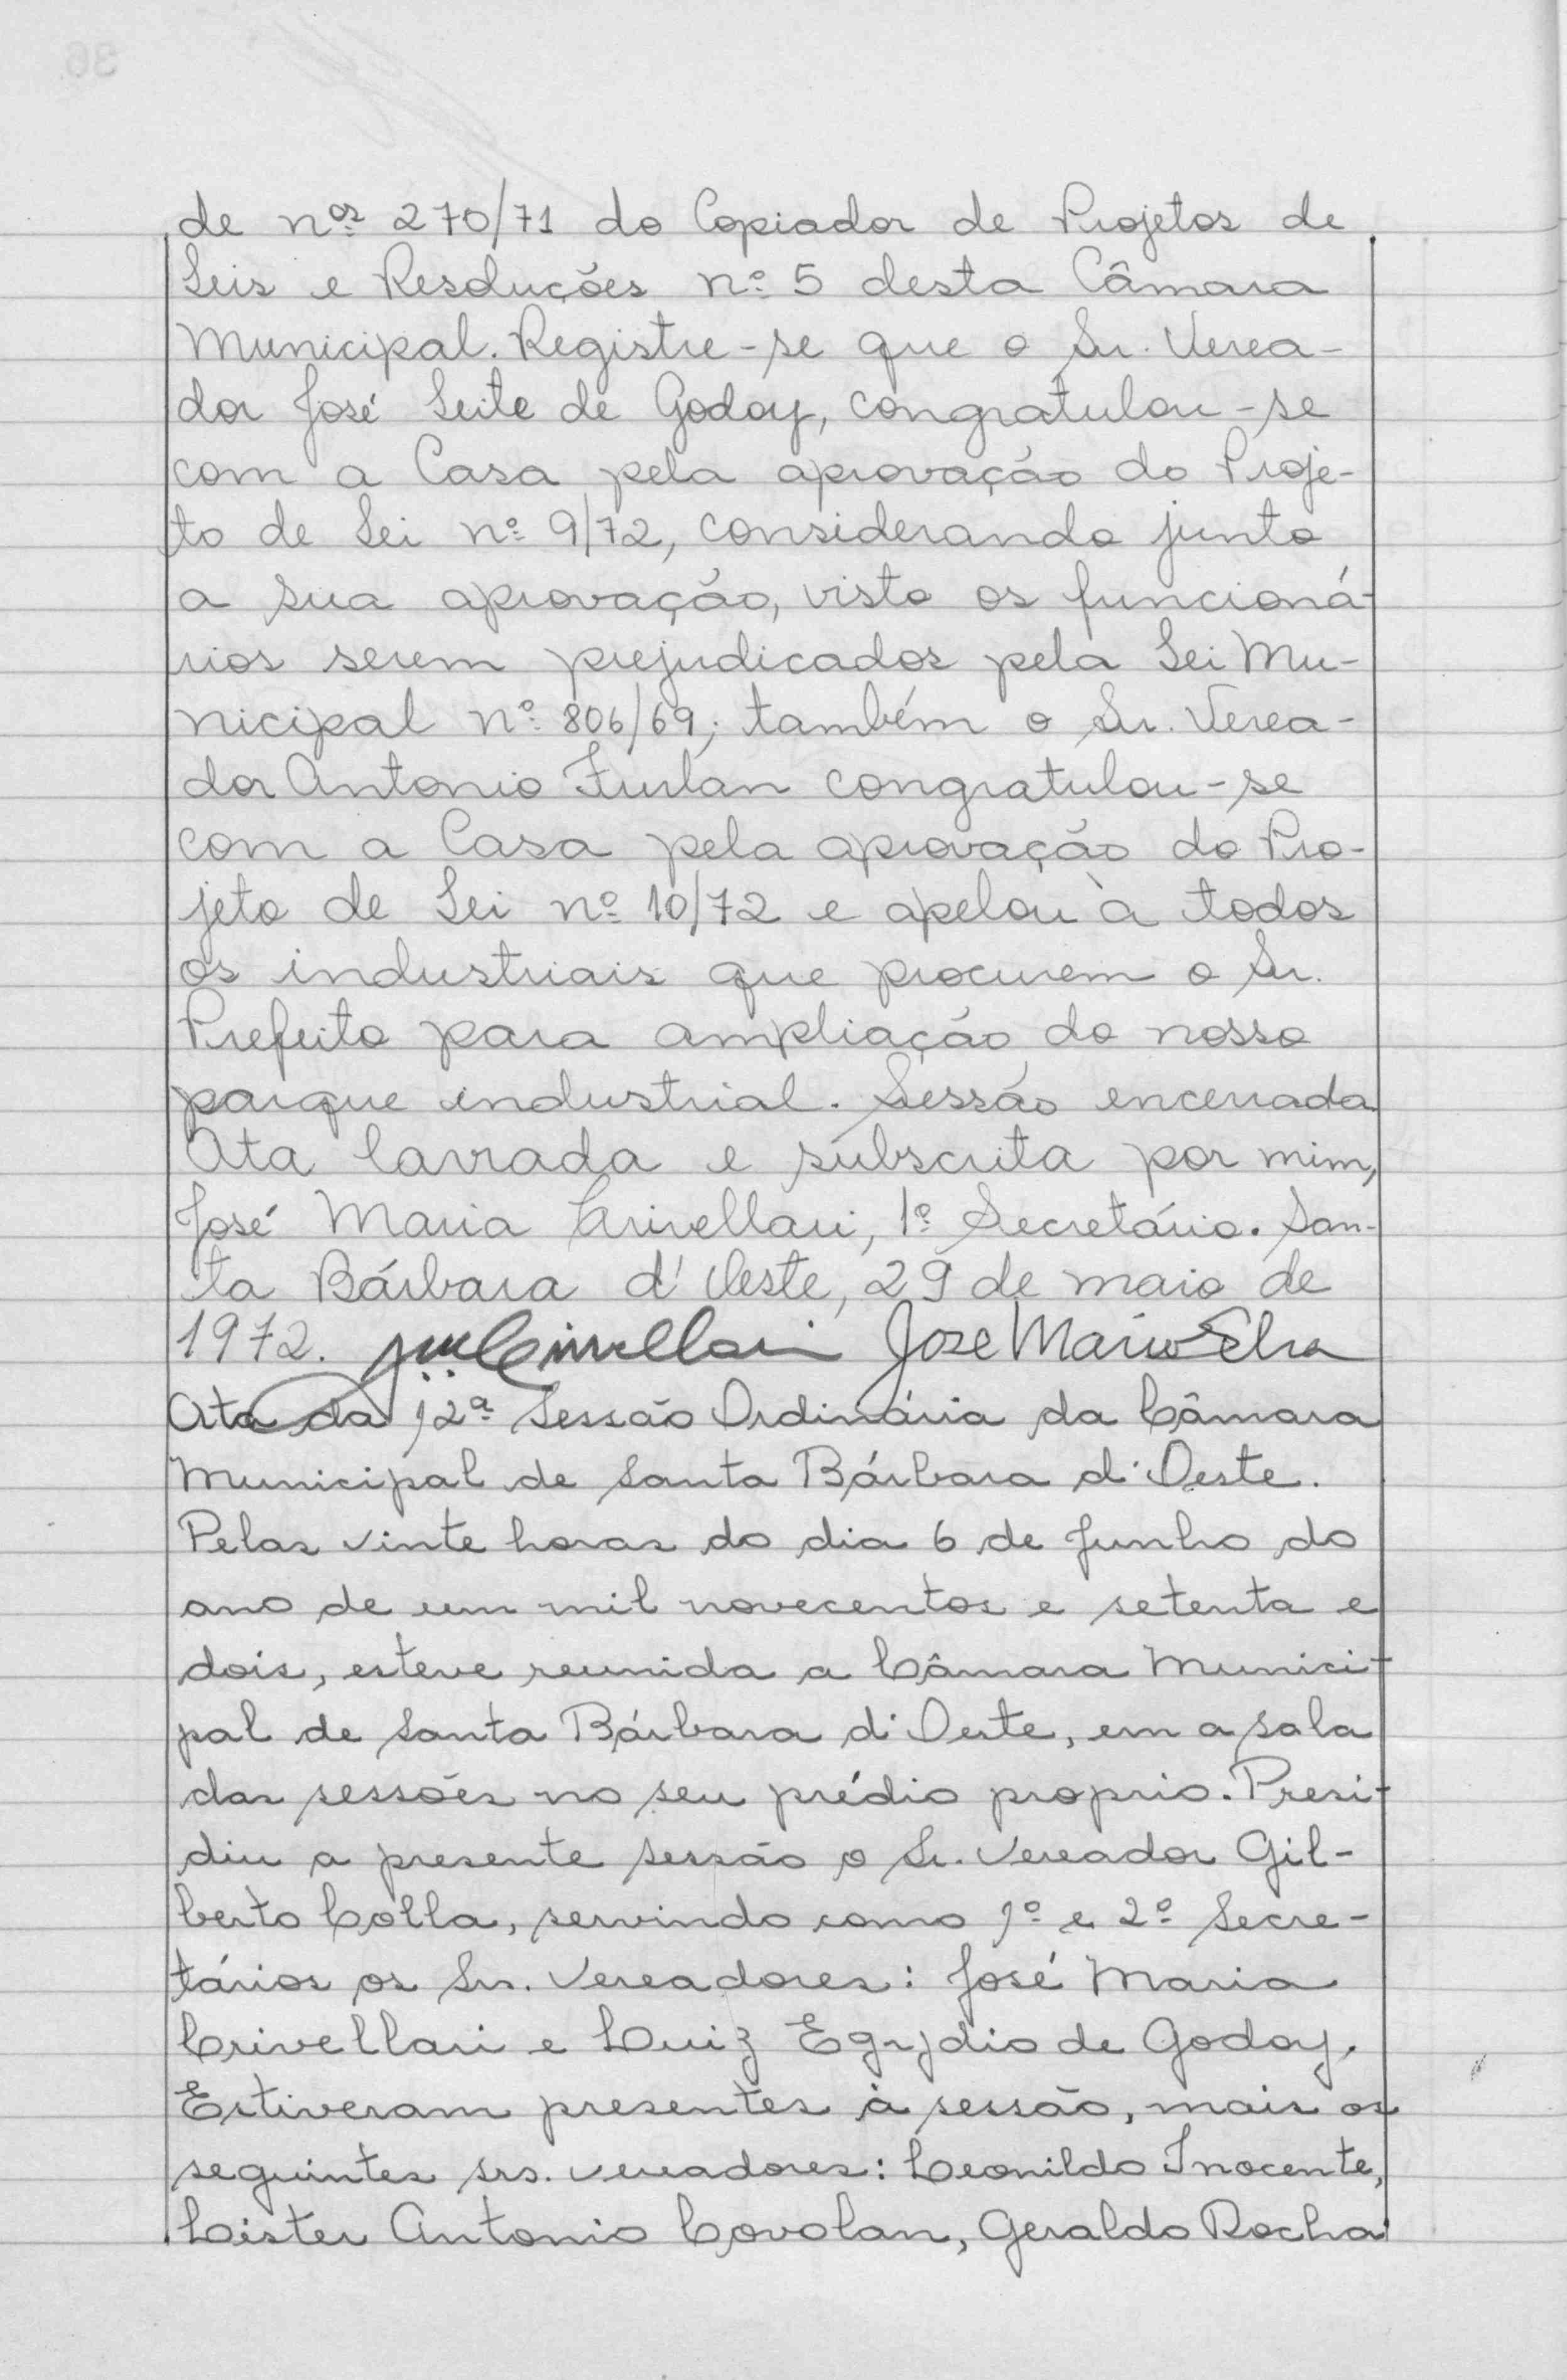 de nos 270/71 do Copiador de Projetos de
Leis e Resoluções nº 5 desta Câmara
Municipal. Registre-se que o Sr. Verea-
dor José Leite de Godoy, congratulou-se
com a Casa pela aprovação do Proje-
to de Lei nº 9/72, considerando junto
a sua aprovação, visto os funcioná-
rios serem prejudicados pela Lei Mu-
nicipal nº 806/69; também o Sr. Verea-
dor Antonio Furlan congratulou-se
com a Casa pela aprovação do Pro-
jeto de Lei nº 10/72 e apelou à todos
os industriais que procurem o Sr.
Prefeito para ampliação do nosso
parque industrial. Sessão encerrada.
Ata lavrada e subscrita por mim,
José Maria Crivellari, 1º Secretário. San-
ta Bárbara d'Oeste, 29 de maio de
1972. Crivellari Jose Maria
Ata da 12ª Sessão Ordinária da Câmara
Municipal de Santa Bárbara d'Oeste.
Pelas vinte horas do dia 6 de Junho do
ano de um mil novecentos e setenta e
dois, esteve reunida a Câmara Munici-
pal de Santa Bárbara d'Oeste, em a sala
das sessões no seu prédio proprio. Presi-
diu a presente sessão o Sr. Vereador Gil-
berto Colla, servindo como 1º e 2º Secre-
tários os Srs. Vereadores: José Maria
Crivellari e Luiz Egydio de Godoy.
Estiveram presentes à sessão, mais os
seguintes srs. vereadores: Leonildo Inocente,
Lister Antonio Covolan, Geraldo Rocha